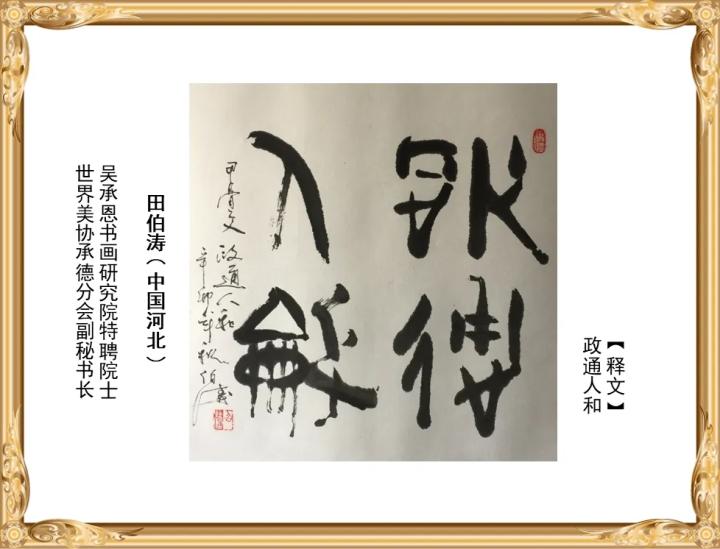 【释文】
政通人和
政通
人和
甲骨文 政通人和
辛卯年
田伯涛（中国河北）
吴承恩书画研究院特聘院士
世界美协承德分会副秘书长